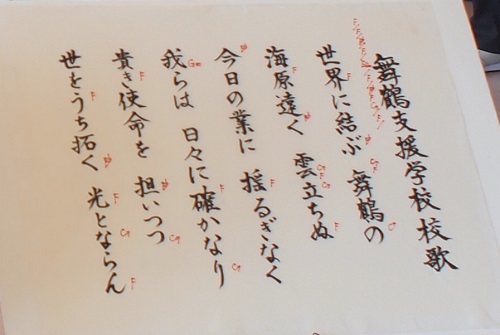 舞鶴支援学校校歌
世界に結ぶ 舞鶴の
海原遠く 雲立ちぬ
今日の業に 揺るぎなく
我らは 日々に確かなり
貴き使命を 担いつつ
世をうち拓く 光とならん